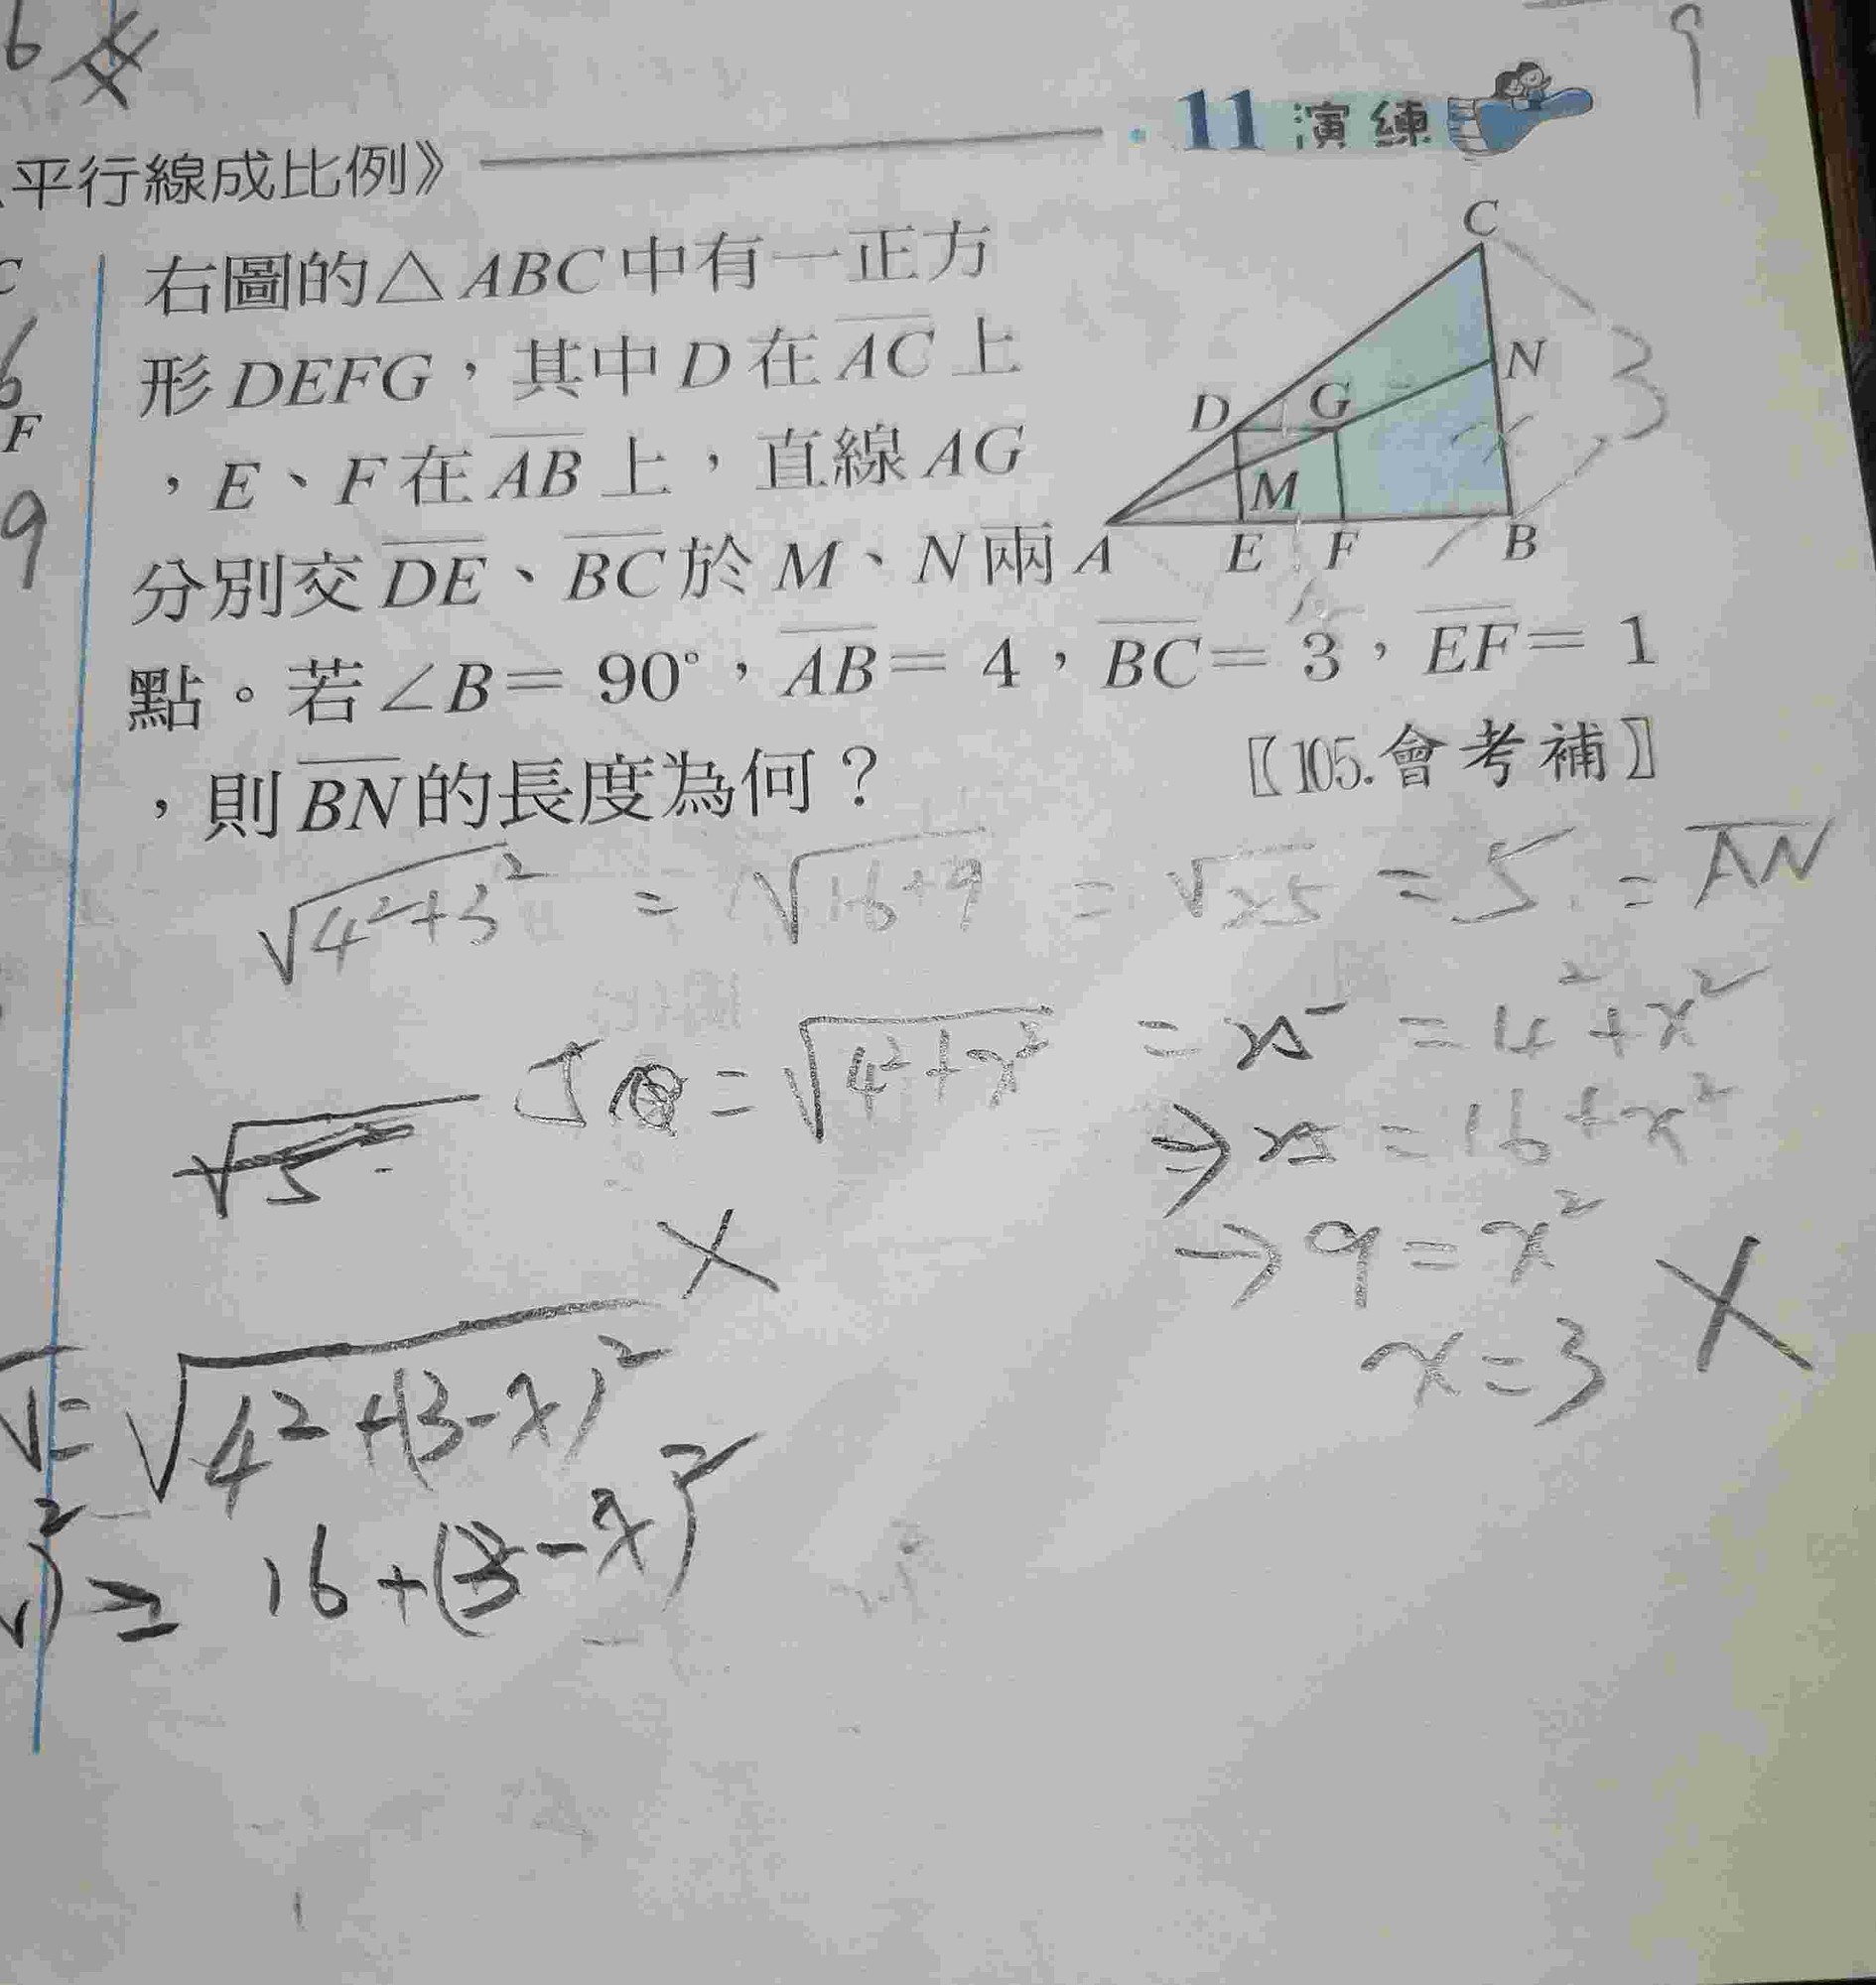 6
9
平行線成比例》
11 演練
C
6
F
9
右圖的△ABC中有一正方
形DEFG，其中D在AC上
，E、F在AB上，直線AG
分別交DE、BC於M、N兩
點。若∠B=90°，AB=4，BC=3，EF=1
，則BN的長度為何？
〖105.會考補〗
C
N
3
D
G
x
M
A
E
F
B
√4²+3² = √16+9 = √25 = 5 = AN
5 = √4²+x² = 25 = 4²+x²
√5
⇒ 25 = 16+x²
→ 9 = x²
x=3
= √4²+(3-x)²
)² = 16+(3-x)²